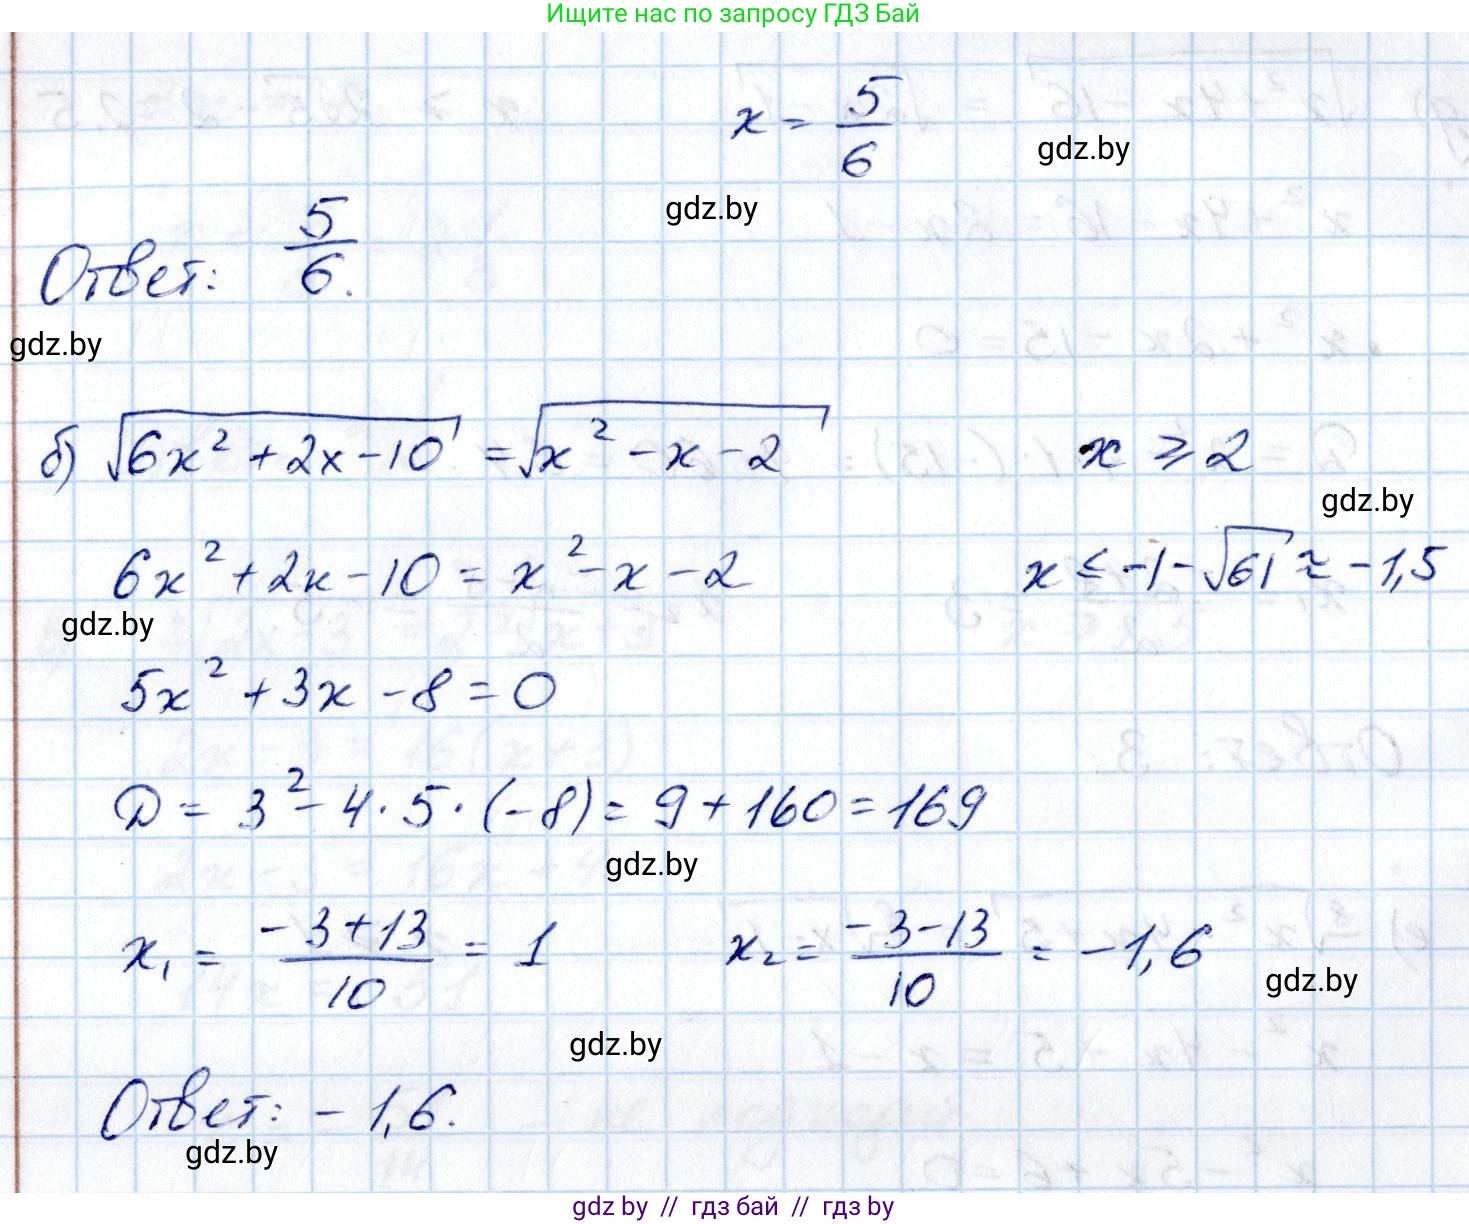 Ищите нас по запросу ГДЗ Бай
x = 5/6
gdz.by
gdz.by
Ответ: 5/6.
gdz.by
б) √(6x² + 2x - 10) = √(x² - x - 2) x ⩾ 2
gdz.by
6x² + 2x - 10 = x² - x - 2 x ≤ -1 - √61 ≈ -1,5
gdz.by
5x² + 3x - 8 = 0
D = 3² - 4 · 5 · (-8) = 9 + 160 = 169
gdz.by
x₁ = (-3 + 13)/10 = 1 x₂ = (-3 - 13)/10 = -1,6
gdz.by
gdz.by
Ответ: -1,6.
gdz.by
gdz by // гдз бай // гдз by